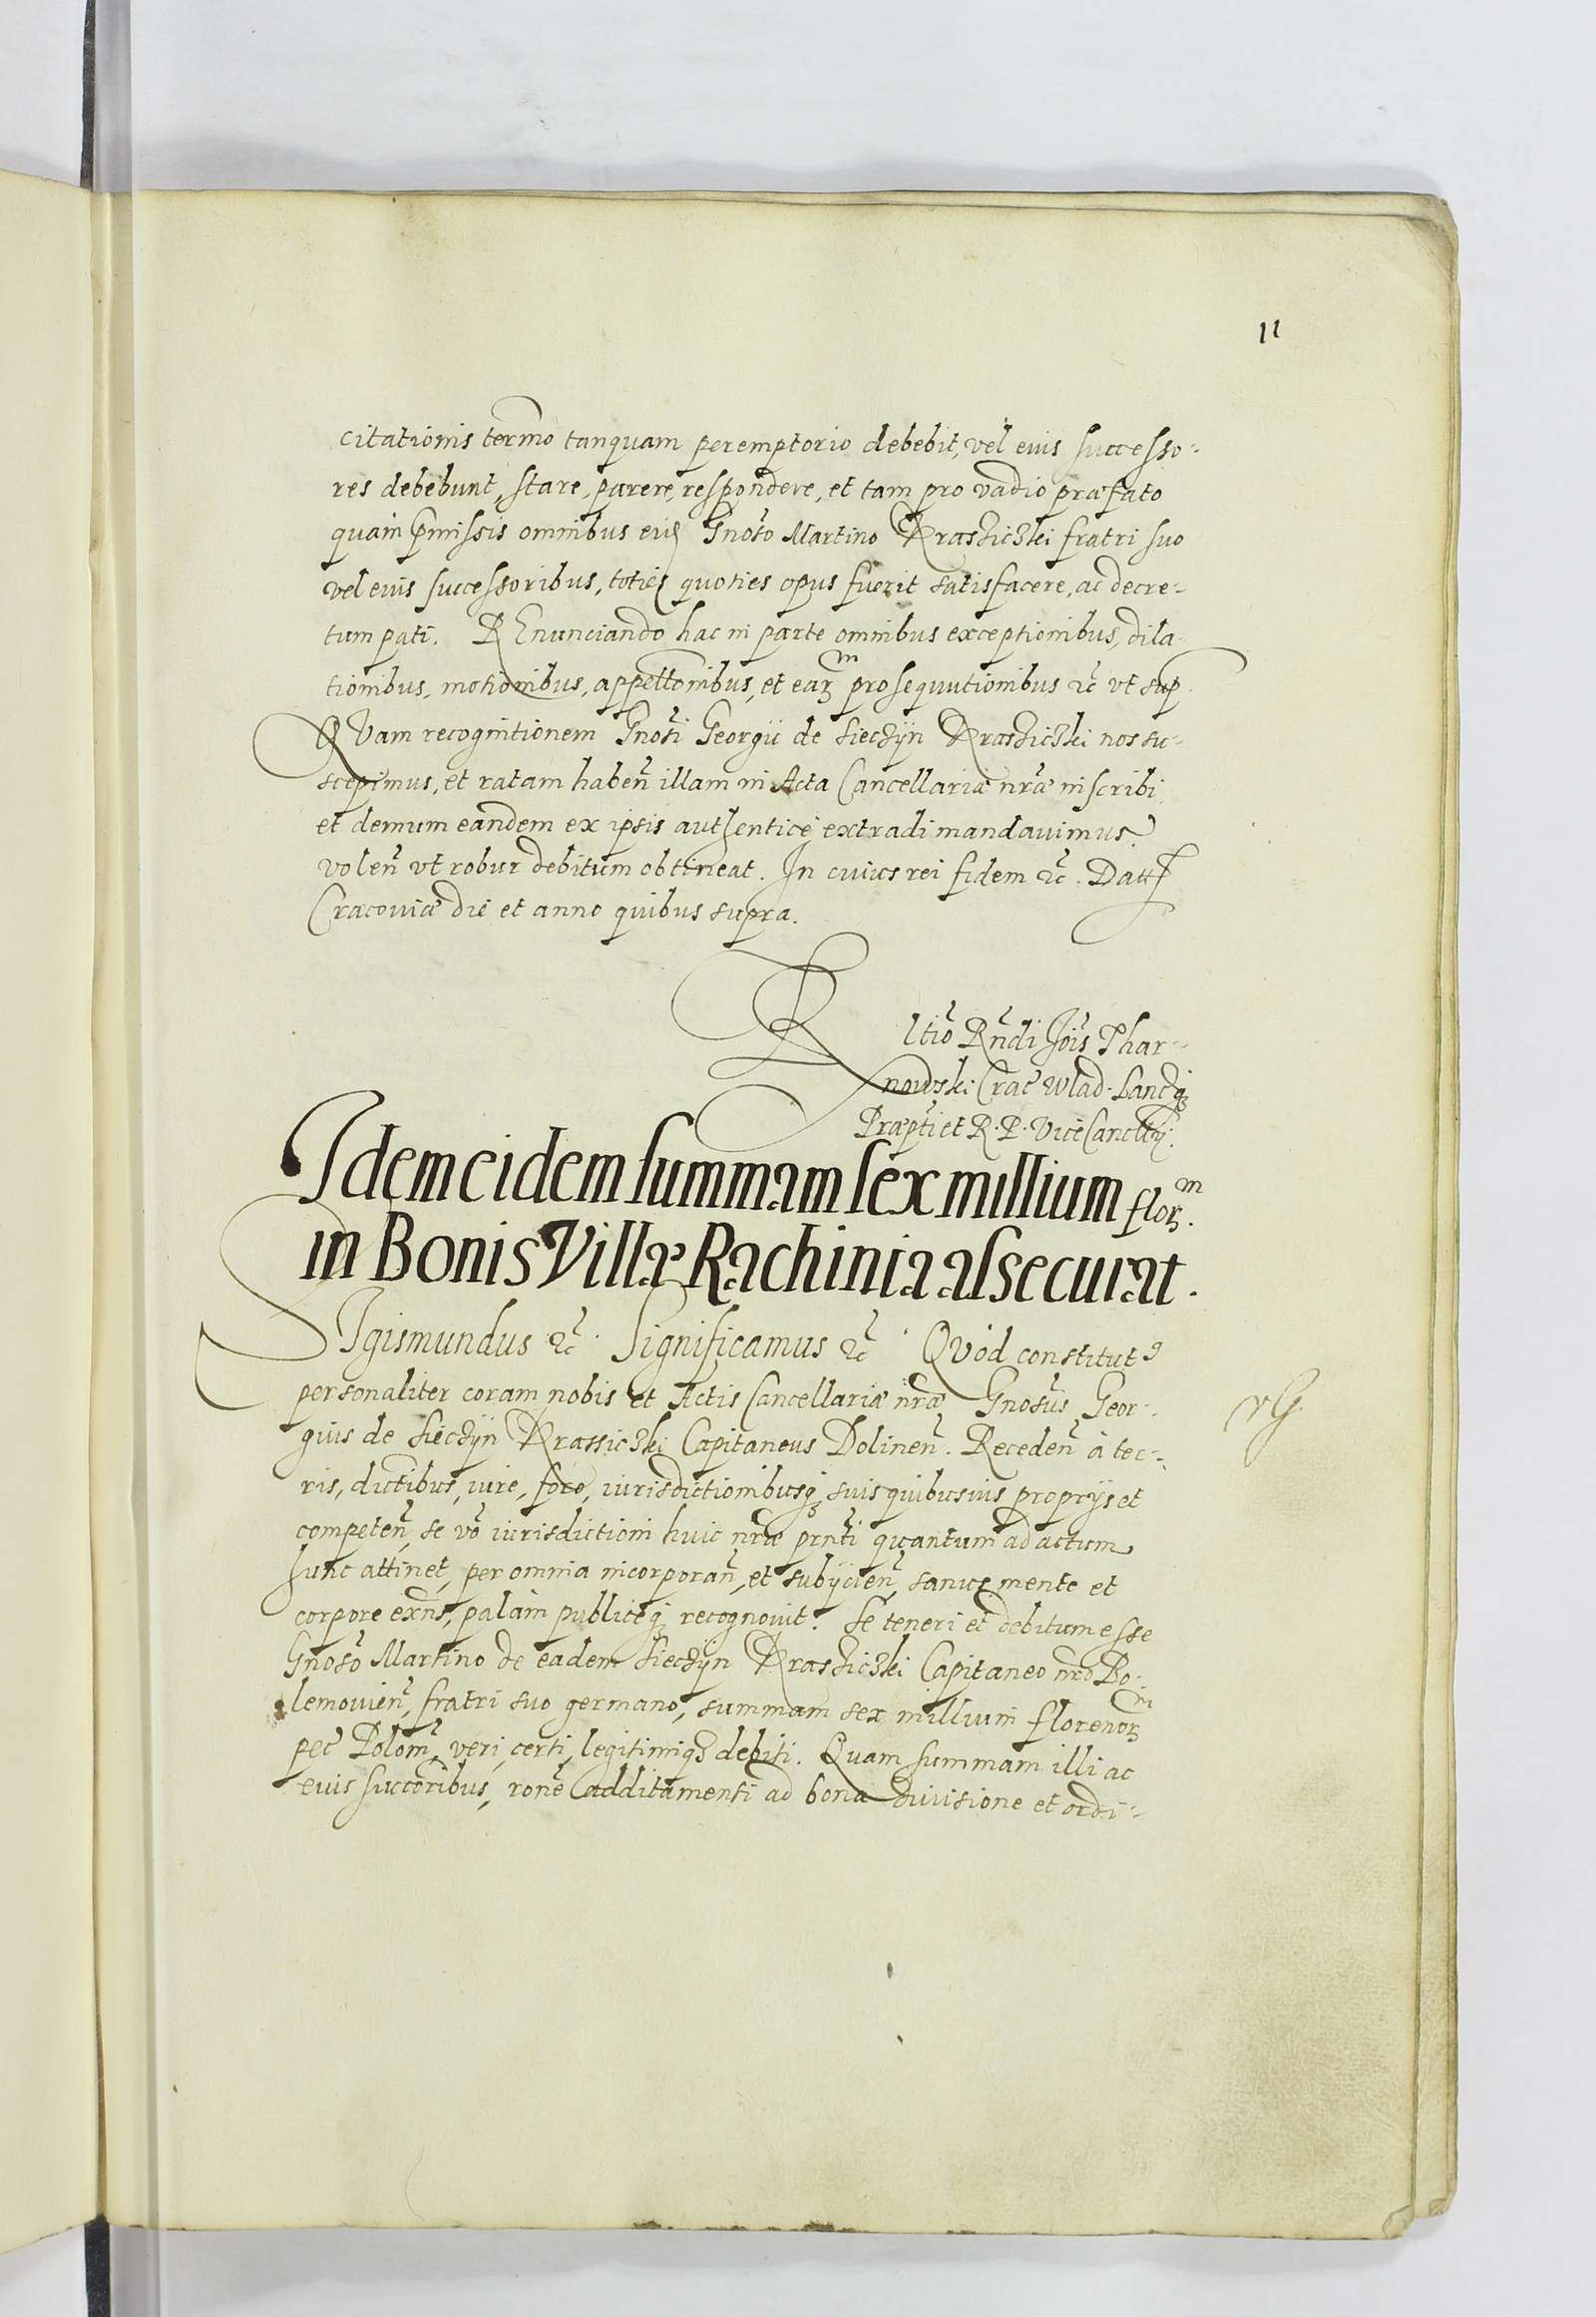 11
citationis termo tanquam peremptorio debebit, vel eius successo-
res debebunt, stare, parere, respondere, et tam pro vadio præfato
quam pmissis omnibus eid Gnoso Martino Krasiczki fratri suo
vel eius successoribus, toties quoties opus fuerit satisfacere, ac decre-
tum pati. REnunciando hac in parte omnibus exceptionibus, dila-
tionibus, motionibus, appellonibus, et earm prosequutionibus etc vt sup.
QVam recognitionem Gnosi Georgii de Sieczÿn Krasiczki nos su-
scepimus, et ratam haben illam in Acta Cancellariæ nræ inscribi,
et demum eandem ex ipsis authenticè extradi mandauimus.
volen vt robur debitum obtineat. In cuius rei fidem etc. Datt
Cracouiæ die et anno quibus supra.
Rltio Rndi Jois Thar-
nowski Crac Wlad. Lancq
Præpti et R. P. ViceCancllrÿ.
Idem eidem summam sex millium florm.
in Bonis Villæ Rachinia assecurat.
SIgismundus etc. Significamus etc. QVòd constitut9
personaliter coram nobis et Actis Cancellariæ nræ Gnosus Geor-
gius de Sieczÿn Krassiczki Capitaneus Dolinen. Receden à ter-
ris, dictibus, iure, foro, iurisdictionibusq suis quibusuis proprÿs et
competen, se vo iurisdictioni huic nræ prnti quantum ad actum
hunc attinet, per omnia incorporan, et subÿcien, sanus mente et
corpore exns, palàm publiceq recognouit. Se teneri et debitum esse
Gnoso Martino de eadem Sieczÿn Krasiczki Capitaneo nro Bo-
lemouien, fratri suo germano, summam sex millium florenorm
pec Polom, veri, certi, legitimiq debiti. Quam summam illi ac
eius succoribus, rone additamenti ad bona diuisione et ordi-